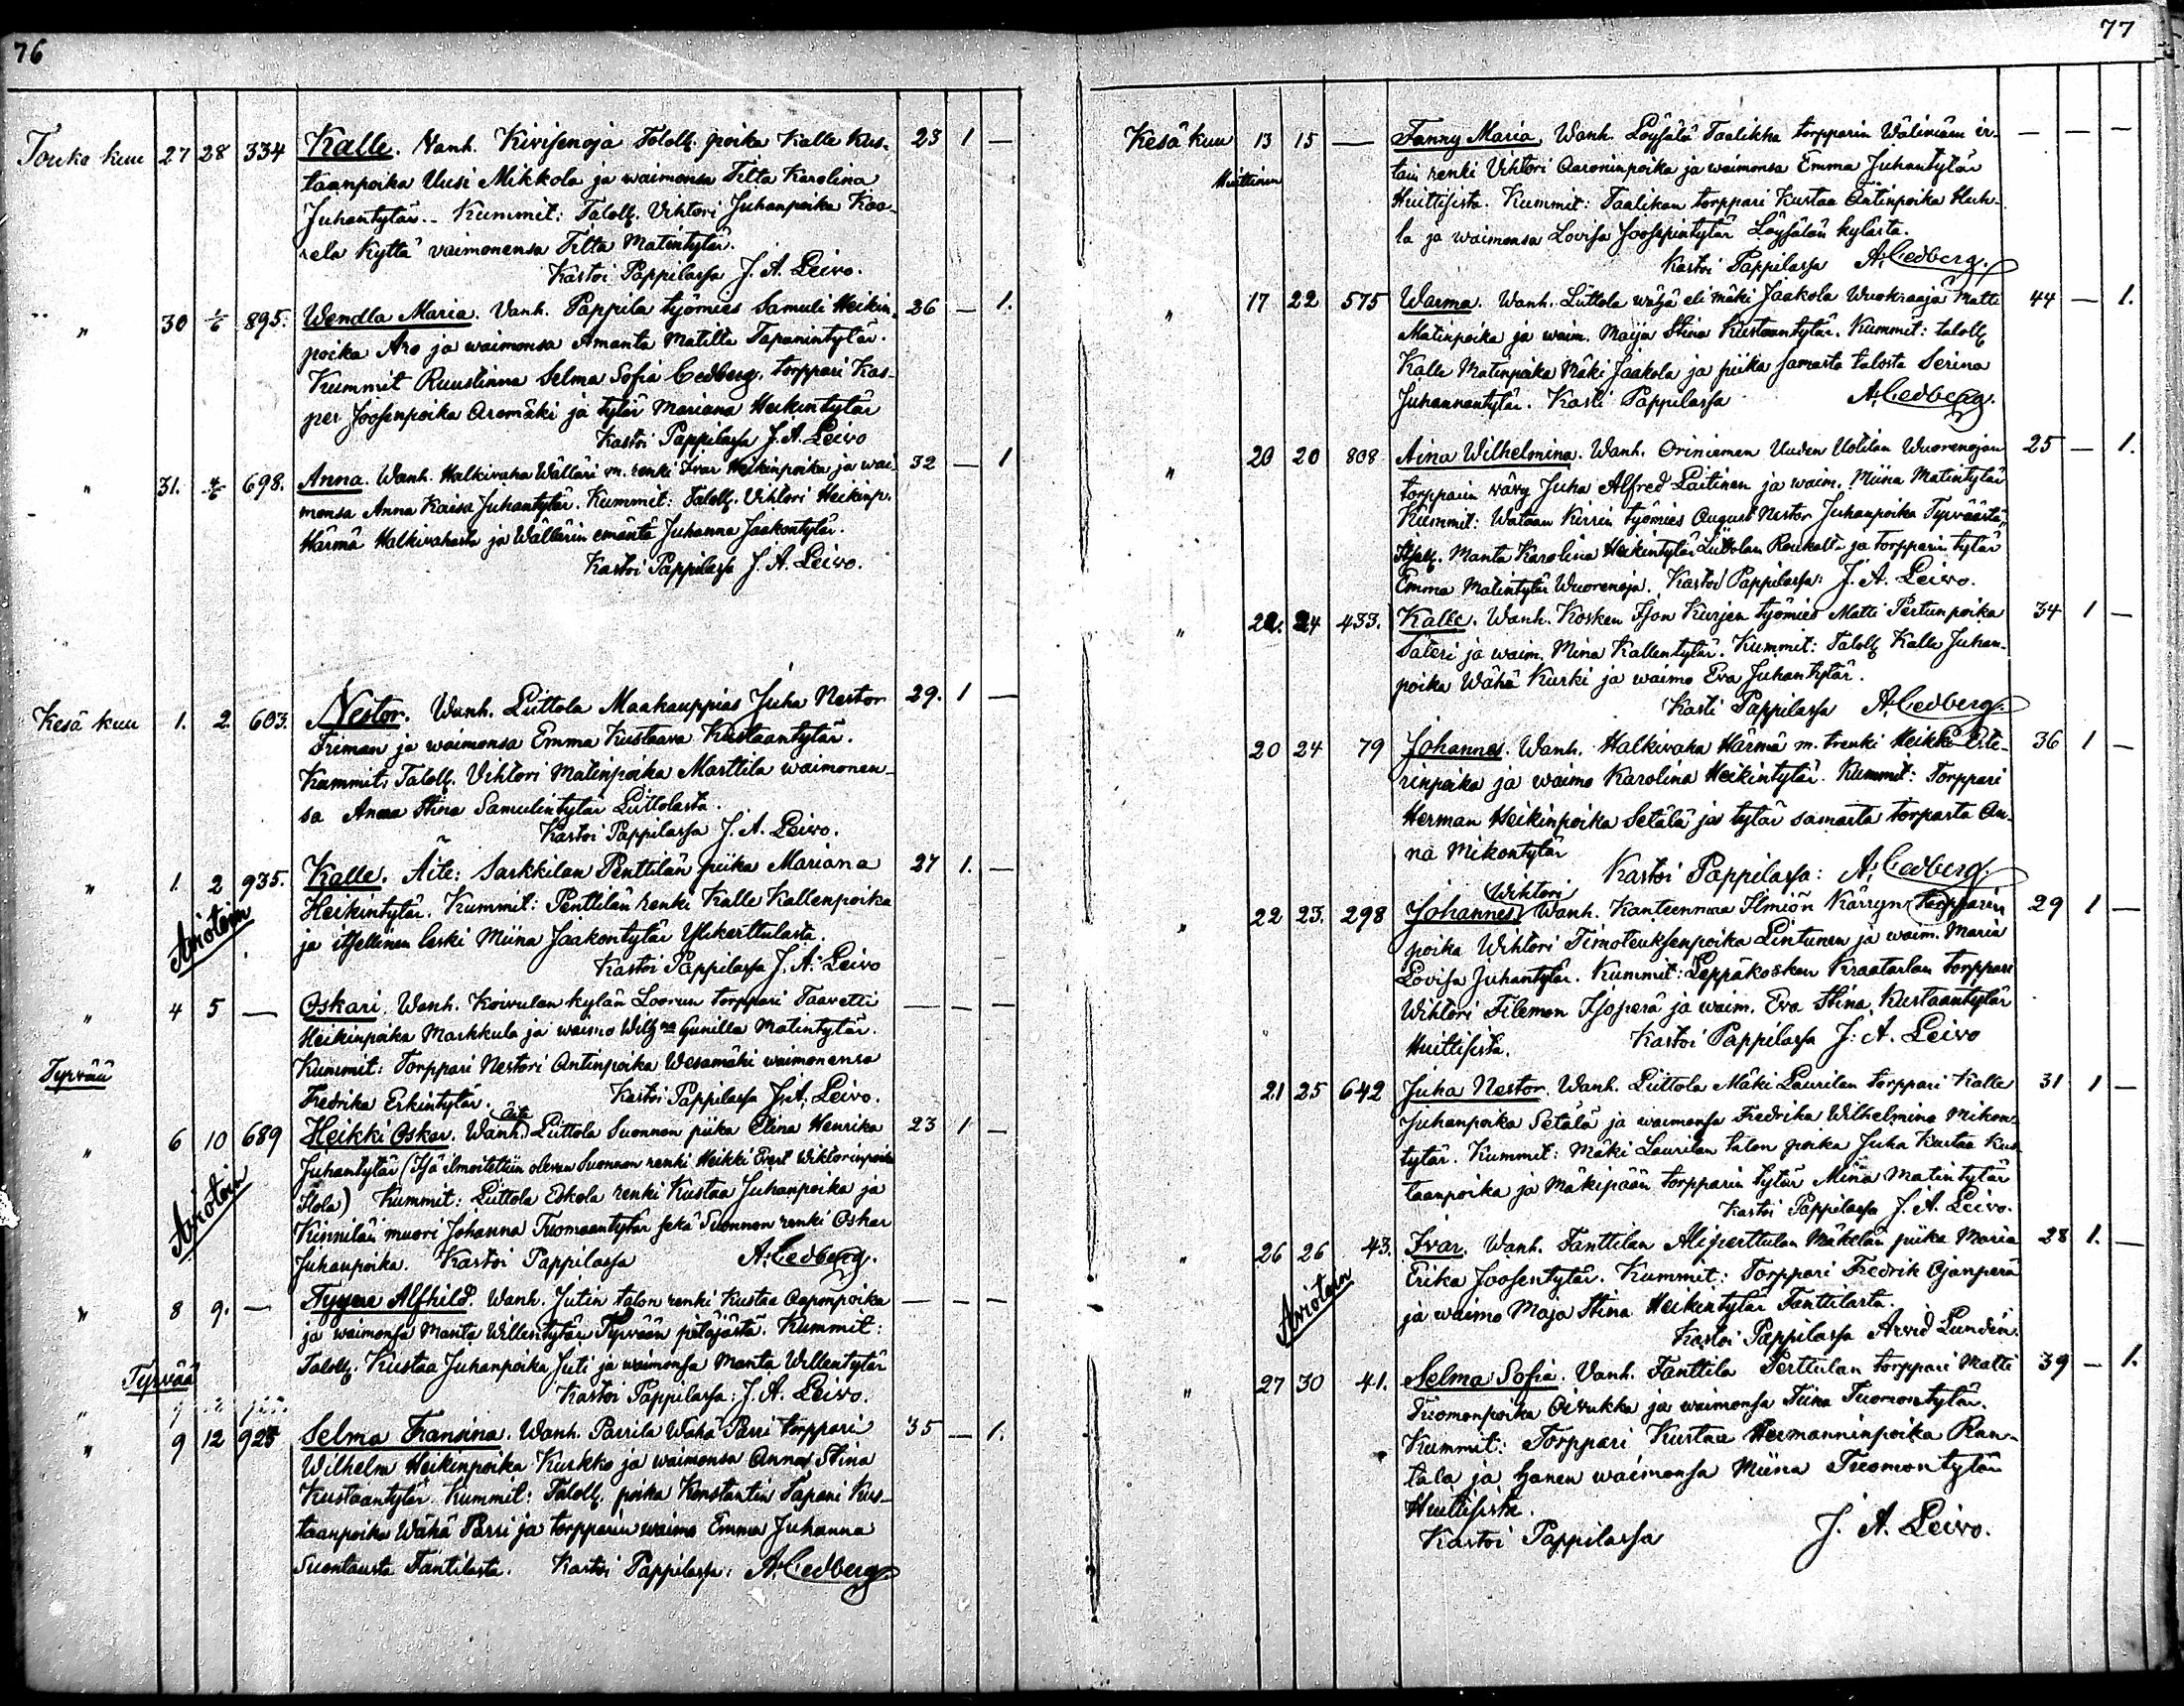 76
Touko kuu 27 28 334 Kalle. Vanh. Kivisenoja Taloll. poika Kalle Kus- 23 1 —
taanpoika Uusi Mikkola ja waimonsa Fitta Karolina
Juhantytär. – Kummit: Taloll. Vihtori Juhanpoika Kaa-
rela Kyttä vaimonensa Fitta Matintytär.
Kastoi Pappilassa J. A. Leivo.
" 30 1/6 895. Wendla Maria. Vanh. Pappila työmies Samuli Heikin- 36 — 1.
poika Aro ja waimonsa Amanta Matilta Tapanintytär.
Kummit Ruustinna Selma Sofia Cedberg, torppari Kas-
per Joosenpoika Aromäki ja tytär Mariana Heikintytär
Kastoi Pappilassa J. A. Leivo
" 31. 4/6 698. Anna. Wanh. Halkivaha Wälläri m. renki Ivar Heikinpoika ja wai- 32 — 1
monsa Anna Kaisa Juhantytär. Kummit: Taloll. Vihtori Heikinp.
Härmä Halkivahasta ja Wällärin emäntä Juhanna Jaakontytär.
Kastoi Pappilassa J. A. Leivo.
Kesä kuu 1. 2. 603. Nestor. Wanh. Liittola Maakauppias Juha Nestor 29. 1 —
Friman ja waimonsa Emma Kustaava Kustaantytär.
Kummit: Taloll. Vihtori Matinpoika Marttila waimonen-
sa Anna Stina Samulintytär Liittolasta.
Kastoi Pappilassa J. A. Leivo.
" 1. 2 935. Kalle. Äite: Sarkkilan Penttilän piika Mariana 27 1. —
Heikintytär. Kummit: Penttilän renki Kalle Kallenpoika
Aviotoin
ja itsellinen leski Miina Jaakontytär Ylikerttulasta.
Kastoi Pappilassa J. A. Leivo
" 4 5 — Oskari. Wanh. Koivulan kylän Loorun torppari Taavetti — — —
Heikinpoika Markkula ja waimo Wilh:na Gunilla Matintytär.
Kummit: Torppari Nestori Antinpoika Wesamäki waimonensa
Tyrvää
Fredrika Erkintytär. Kastoi Pappilassa J. A. Leivo.
Äite
" 6 10 689 Heikki Oskar. Wanh. Liittola Suonnon piika Elina Henrika 23 1 —
Juhantytär (Isä ilmoitettiin olevan Suonnon renki Heikki Evert Wiktorinpoika
Aviotoin
Flola) Kummit: Liittola Eskola renki Kustaa Juhanpoika ja
Kinnilän muori Johanna Tuomaantytär sekä Suonnon renki Oskar
Juhanpoika. Kastoi Pappilassa A. Cedberg.
" 8 9. — Tyyne Alfhild. Wanh. Jutin talon renki Kustaa Aaponpoika — — —
ja waimonsa Manta Willentytär Tyrvään pitäjästä. Kummit:
Taloll. Kustaa Juhanpoika Juti ja waimonsa Manta Willentytär
Tyrvää
Kastoi Pappilassa: J. A. Leivo.
" 9 12 923 Selma Fransina. Wanh. Parrila Wähä Parri torppari 35 — 1.
Wilhelm Heikinpoika Kurkko ja waimonsa Anna Stina
Kustaantytär. Kummit: Taloll. poika Konstantin Tapani Kus-
taanpoika Wähä Parri ja torpparin waimo Emma Juhanna
Suontausta Fantilasta. Kastoi Pappilassa: A. Cedberg
77
Kesä kuu 13 15 — Fanny Maria. Wanh. Löysälä Taalikka torpparin Wäliniäm ir- — — —
Huittinen
tain renki Vihtori Aaroninpoika ja waimonsa Emma Juhantytär
Huittisista. Kummit: Taalikan torppari Kustaa Antinpoika Huh-
la ja waimonsa Lovisa Joosepintytär Löysälän kylästä.
Kastoi Pappilassa A. Cedberg.
" 17 22 575 Warma. Wanh. Liittola wähä eli mäki Jaakola Wuokraaja Matti 44 — 1.
Matinpoika ja waim. Maija Stina Kustaantytär. Kummit: taloll
Kalle Matinpoika Mäki Jaakola ja piika samasta talosta Serina
Juhannantytär. Kasti Pappilassa A. Cedberg.
" 20 20 808 Aina Wilhelmina. Wanh. Oriniemen Uuden Uotilan Wuorenojan 25 — 1.
torpparin vävy Juha Alfred Laitinen ja waim. Miina Matintytär
Kummit: Wataan Kirrin työmies August Nestor Juhanpoika Tyrväästä,
Itsell. Manta Karolina Heikintytär Liittolan Roukalta ja torpparin tytär
Emma Matintytär Wuorenoja. Kastoi Pappilassa: J. A. Leivo.
" 22. 24 433. Kalle. Wanh. Kosken Ison Kurjen työmies Matti Pertunpoika 34 1 —
Säteri ja waim. Mina Kallentytär. Kummit: Taloll Kalle Juhan-
poika Wähä Kurki ja waimo Eva Juhantytär.
Kasti Pappilassa A. Cedberg.
20 24 79 Johannes. Wanh. Halkivaha Härmä m. trenki Heikki Este- 36 1 —
rinpoika ja waimo Karolina Heikintytär. Kummit: Torppari
Herman Heikinpoika Setälä ja tytär samasta torpasta An-
na Mikontytär
Kastoi Pappilassa: A. Cedberg.
Wihtori
" 22 23. 298 Johannes. Wanh. Kanteenmaa Ilmiön Kärryn torpparin 29 1 —
poika Wihtori Timoteuksenpoika Lintunen ja waim. Maria
Lovisa Juhantytär. Kummit: Leppäkosken Kraatarlan torppari
Wihtori Filemon Isoperä ja waim. Eva Stina Kustaantytär
Huittisista. Kastoi Pappilassa J. A. Leivo
21 25 642 Juha Nestor. Wanh. Liittola Mäki Laurilan torppari Kalle 31 1 —
Juhanpoika Setälä ja waimonsa Fredrika Wilhelmina Mikon-
tytär. Kummit: Mäki Laurilan talon poika Juha Kustaa Kus-
taanpoika ja Mäkipään torpparin tytär Mina Matintytär
Kastoi Pappilassa J. A. Leivo.
" 26 26 43. Ivar. Wanh. Fanttilan Aliperttulan Mäkelän piika Maria 28 1. —
Erika Joosentytär. Kummit: Torppari Fredrik Ojanperä
Aviotoin
ja waimo Maja Stina Heikintytär Fanttilasta.
Kastoi Pappilassa Arvid Lundén.
" 27 30 41. Selma Sofia. Vanh. Fanttila Perttulan torppari Matti 39 — 1.
Tuomonpoika Oivukka ja waimonsa Tiina Tuomontytär.
Kummit: Torppari Kustaa Hermanninpoika Ran-
tala ja hänen waimonsa Miina Tuomontytär
Huittisista.
Kastoi Pappilassa J. A. Leivo.